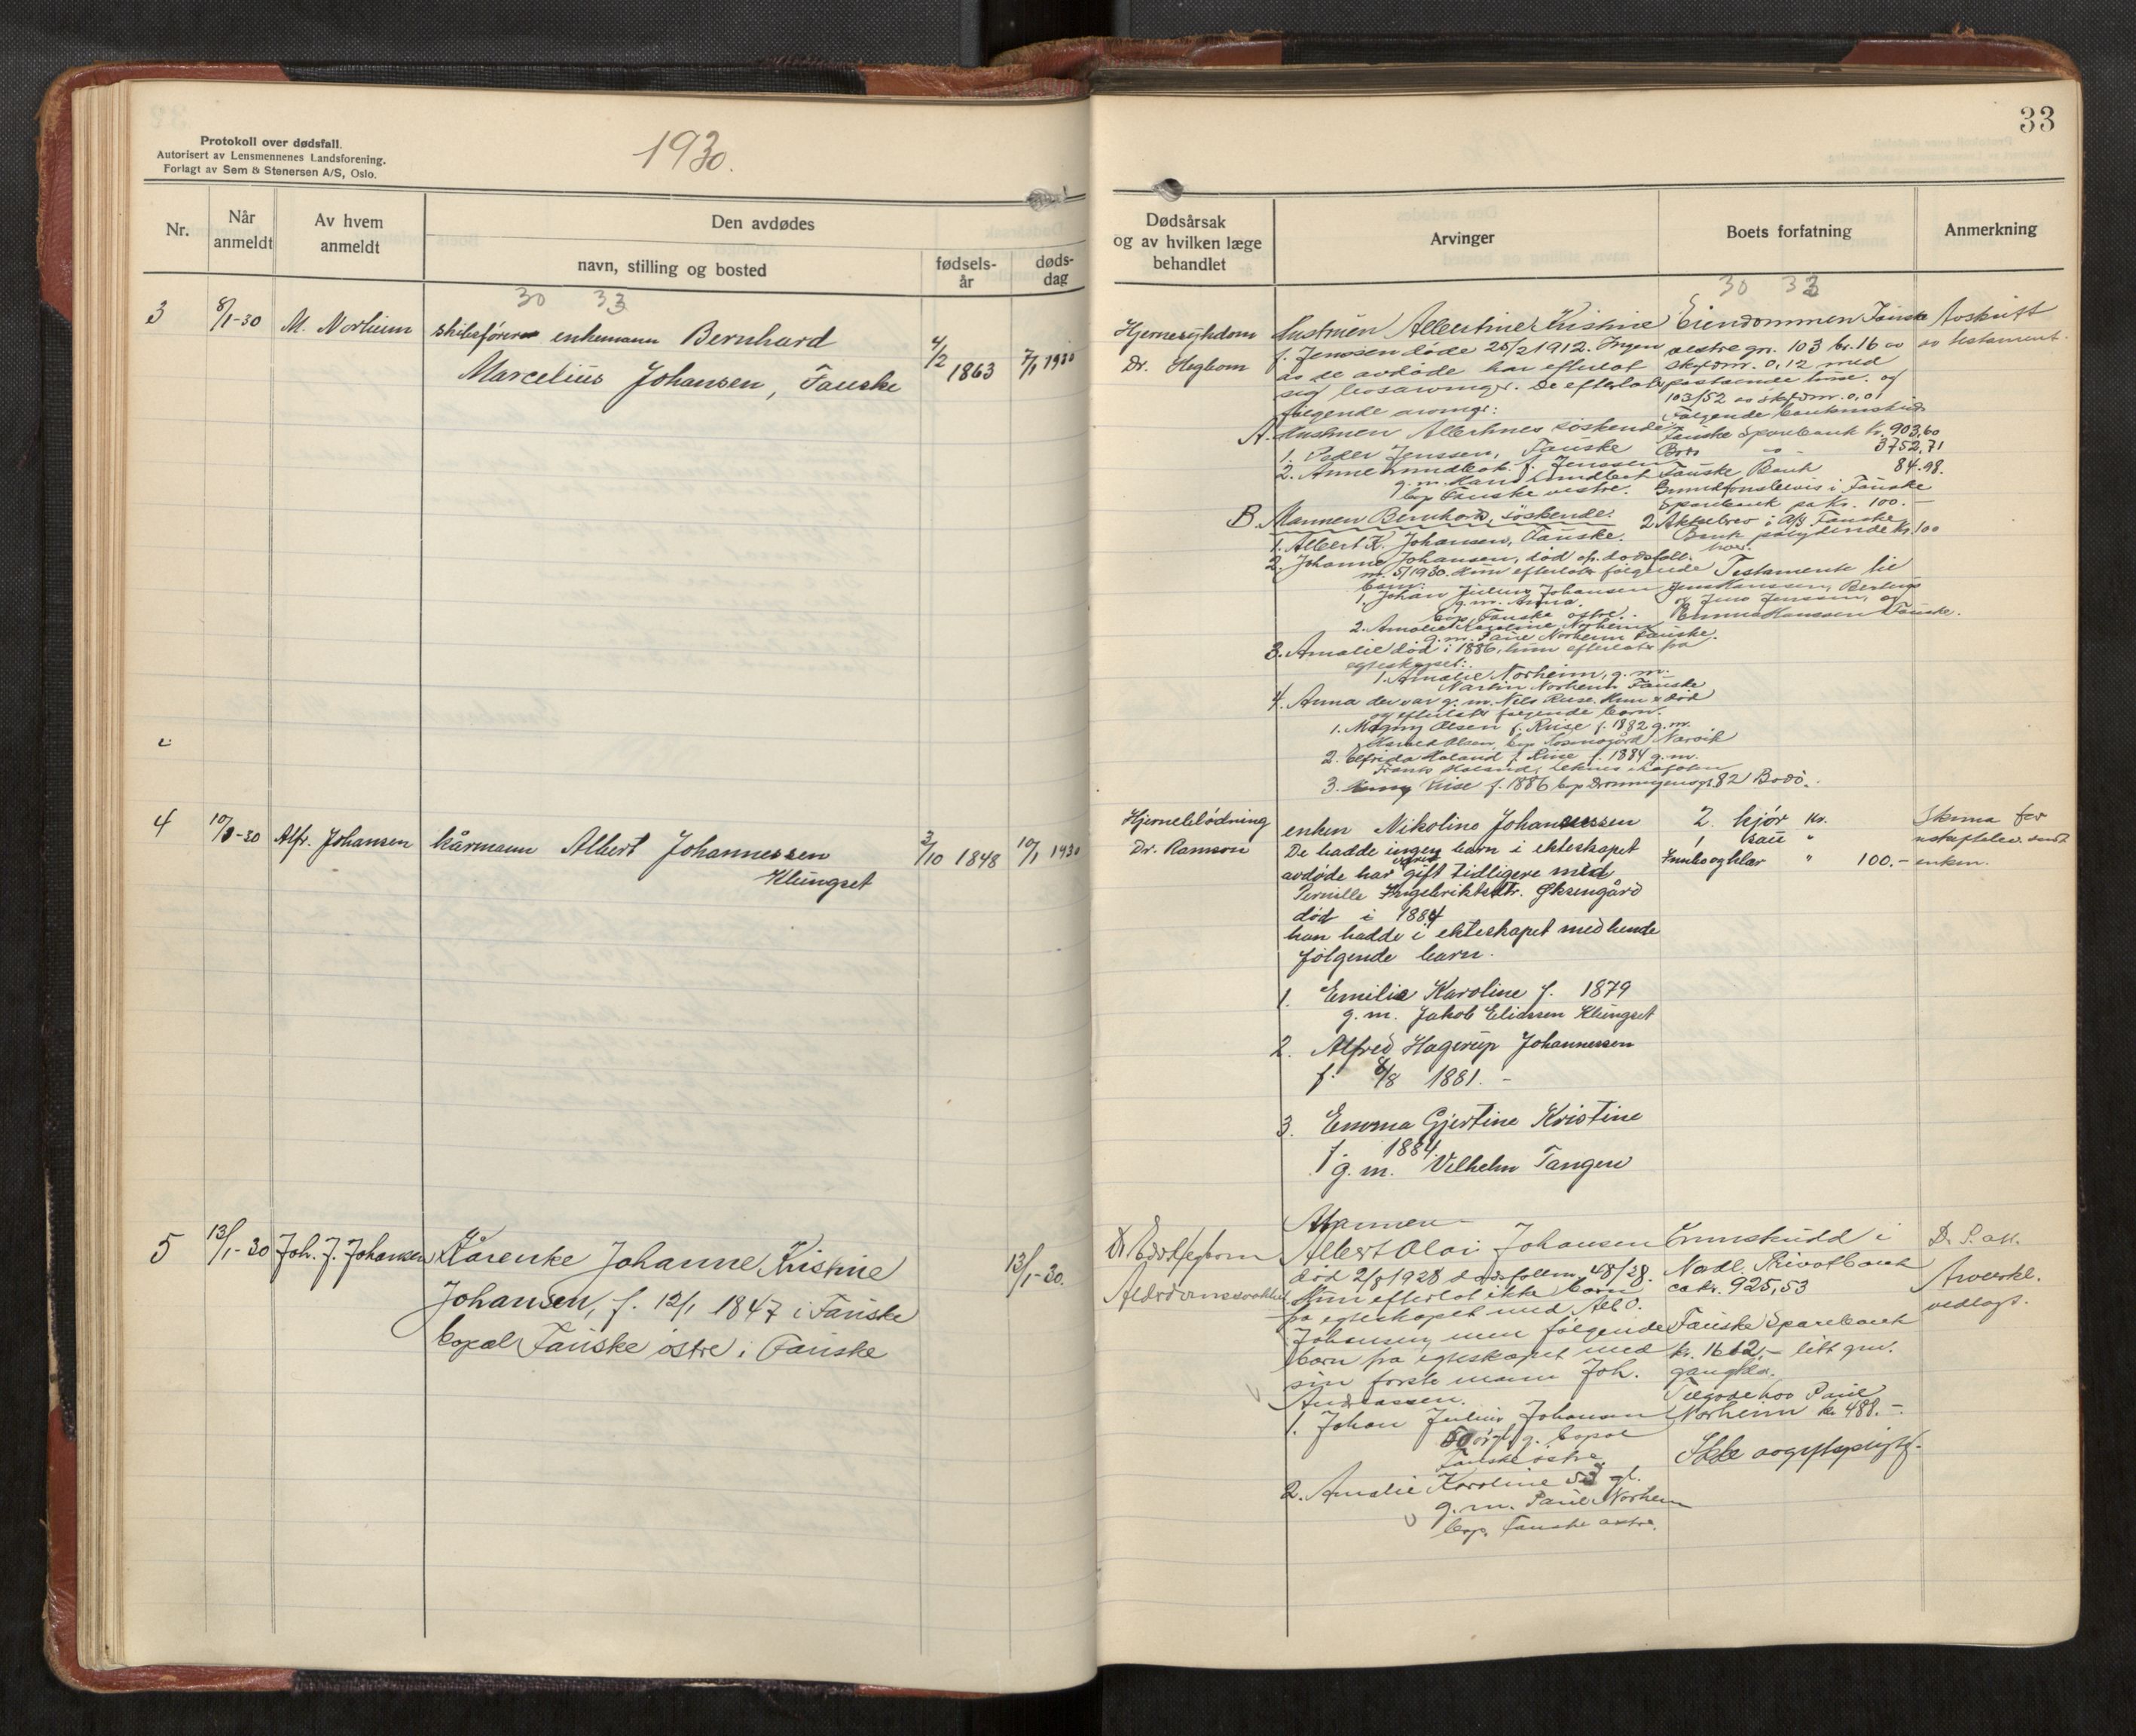 Protokoll over dødsfall.
Autorisert av Lensmennenes Landsforening.
Forlagt av Sem & Stenersen A/S, Oslo.
1930.
Nr.
Når
anmeldt
Av hvem
anmeldt
Den avdødes
navn, stilling og bosted
fødsels-
år
døds-
dag
30 33
3
8/1-30
M. Norheim
skibsfører enkemann Bernhard
Marcelius Johansen, Fauske
4/2 1863
7/1 1930
4
10/1-30
Alfr. Johansen
kårmann Albert Johannessen
Klungset
2/10 1848
10/1 1930
5
13/1-30
Joh. J. Johansen
Kårenke Johanne Kristine
Johansen, f. 12/1 1847 i Fauske
bopæl Fauske östre i Fauske
13/1-30.
33
Dødsårsak
og av hvilken læge
behandlet
Arvinger
Boets forfatning
Anmerkning
30 33
Hjernesykdom
Dr. Hegbom
Hustruen Albertine Kristine
f. Jenssen døde 25/2 1912. Ingen
av de avdøde har efterlatt
sig livsarvinger. De efterlater
følgende arvinger:
A. Hustruen Albertines söskende:
1. Peder Jenssen, Fauske
2. Anne f. Jenssen
g. m. Hans
bop Fauske vestre.
B. Mannen Bernhards söskende:
1. Albert K. Johansen, Fauske.
2. Johanne Johansen, død cfr. dødsfall
nr. 5/1930. Hun efterlater følgende
barn:
1. Johan Julius Johansen
g. m. Anna.
bop. Fauske østre.
2. Amalie Karoline Norheim
g. m. Paul Norheim Fauske.
3. Amalie død i 1886, hun efterlater fra
egteskapet:
1. Amalie Norheim, g. m.
Martin Norheim Fauske
4. Anna der var g. m. Nils Riise. Hun er død
og efterlater følgende barn:
1. Magny Olsen f. Riise f. 1882 g. m.
Olsen, bop Narvik
2. Elfrida Haland f. Riise f. 1884 g. m.
Haland, Leknes i Lofoten
3. Riise f. 1886 bop Dronningensgt 82 Bodö.
Eiendommen Fauske
vestre gn. 103 br. 16 av
skyldmr. 0,12 med
påstående huse. og
103/52 av skyldmr. 0,01
Følgende bankinnskudd
Fauske Sparebank kr. 903,60
Bodö - " - 3752,71
Fauske Bank 84.98.
Grundfondsbevis i Fauske
Sparebank på kr. 100.-
2 Aktiebrev i A/S Fauske
Bank pålydende kr. 100
hver.
Testamente til
Jens Hanssen,
og Jens Jenssen, og
Emma Hanssen Fauske.
Avskrift
av testament.
Hjerneblödning
Dr. Ramson
enken Nikoline Johannessen
De hadde ingen barn i ekteskapet
avdøde har været gift tidligere med
Pernille Ingebriktsdtr. Øksengård
död i 1884
han hadde i ekteskapet med hende
følgende barn.
1. Emilie Karoline f. 1879
g. m. Jakob Eliassen Klungset
2. Alfred Hagerup Johannessen
f. 8/8 1881. -
3. Emma Gjertine Kristine
f. 1884.
g. m. Vilhelm Tangen
2 kjör kr.
1 sau "
Innbo og klær " 100.-
Skema for
sendt
enken.
Dr. Hegbom
Alderdomssvakhet
Mannen
Albert Olai Johansen
død 2/8 1928 dødsfallnr. 48/28.
Hun efterlot ikke barn
fra egteskapet med Alb. O.
Johansen, men følgende
barn fra egteskapet med
sin første mann Joh.
Andreassen.
1. Johan Julius Johansen
60 år gl. g. bopæl
Fauske østre
2. Amalie Karoline 53 gl.
g. m. Paul Norheim
bop. Fauske østre.
Innskudd i
Nordl. Privatbank
ca kr. 925,53
Fauske Sparebank
kr. 1612,- litt
gangklær.
Tilgode hos Paul
Norheim kr. 488.-
Ikke avgiftspligtig.
D. S. att.
Arveerkl.
vedlagt.